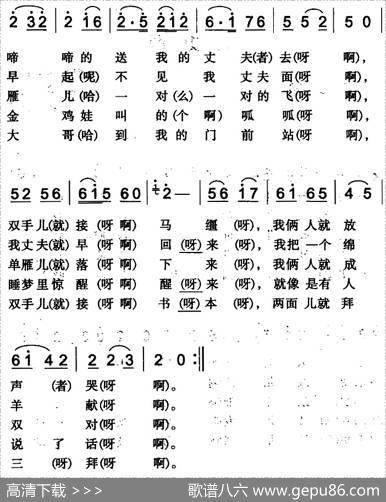 2̇ 3̇2̇ | 2̇ 1̇6 | 2̇·5 2̇1̇2̇ | 6·1̇ 76 | 5 52 | 5 0 |
啼 啼的 送 我的 丈 夫(者) 去(呀 啊),
早 起(呢) 不 见 我 丈夫 面(呀 啊),
雁 儿(哈) 一 对(么) 一 对的 飞(呀 啊),
金 鸡娃 叫 的(个 啊) 呱 呱(呀 啊),
大 哥(哈) 到 我的 门 前 站(呀 啊),
52 56 | 61̇5 60 | 2̇ — | 56 1̇7 | 61̇ 65 | 45 |
双手 儿(就) 接 (呀 啊) 马 缰 (呀), 我俩 人就 放
我丈 夫(就) 早 (呀 啊) 回 (呀) 来 (呀), 我把 一个 绵
单雁 儿(就) 落 (呀 啊) 下 来 (呀), 我俩 人就 成
睡梦 里惊 醒 (呀 啊) 醒 (呀) 来 (呀), 就像 是有 人
双手 儿(就) 接 (呀 啊) 书 (呀) 本 (呀), 两面 儿就 拜
61̇ 42 | 2 23 | 2 0 :‖
声 (者) 哭(呀 啊)。
羊 献(呀 啊)。
双 对(呀 啊)。
说 了 话(呀 啊)。
三 (呀) 拜(呀 啊)。
高清下载 >>> 歌谱八六 www.gepu86.com